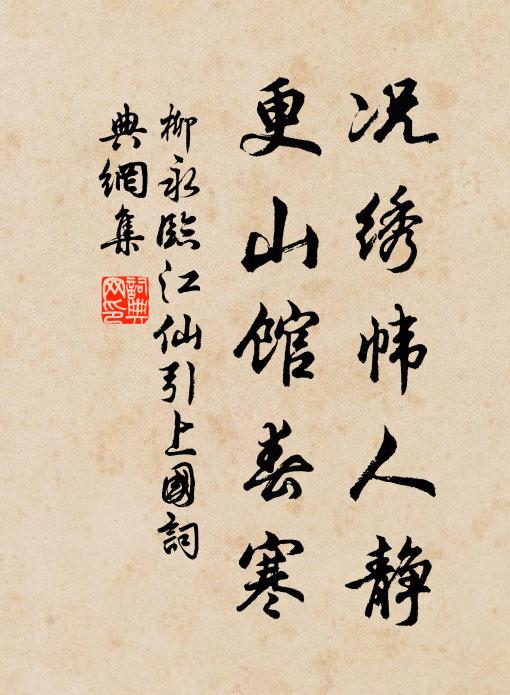 况绣帏人静
更山馆春寒
柳永臨江仙引上國詞
典網集
詞典网印